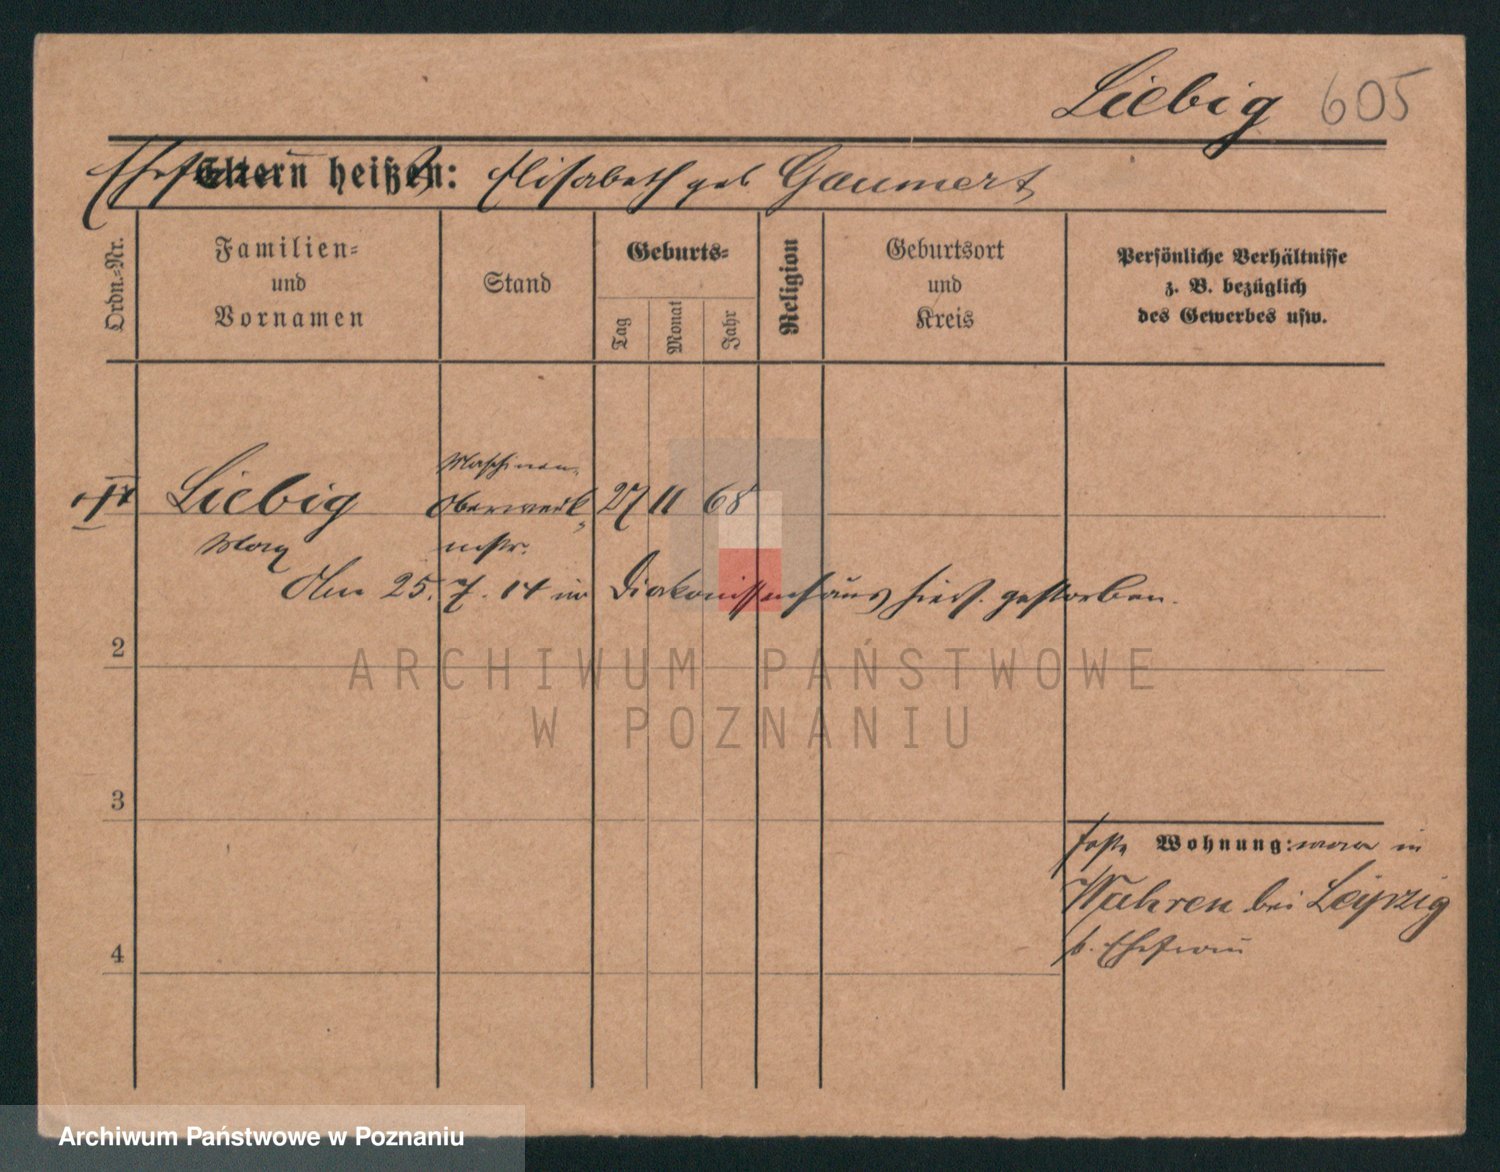 Liebig 605
Ehefrau Eltern heißen: Elisabeth geb Gaumert
Ordn.-Nr.
Familien- und Vornamen
Stand
Geburts-
Tag
Monat
Jahr
Religion
Geburtsort und Kreis
Persönliche Verhältnisse
z. B. bezüglich
des Gewerbes usw.
Maschinen-
Liebig Oberwerk- 27 11 68
Max mstr.
Am 25. 7. 14 im Diakonissenhaus hies. gestorben.
2
ARCHIWUM PAŃSTWOWE
W POZNANIU
3
feste Wohnung: war in
Wahren bei Leipzig
b. Ehefrau
4
Archiwum Państwowe w Poznaniu